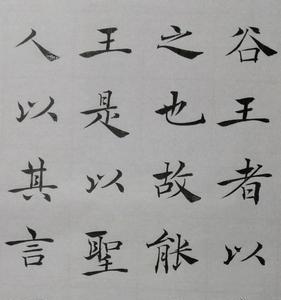 谷王者以
之也故能
王是以聖
人以其言